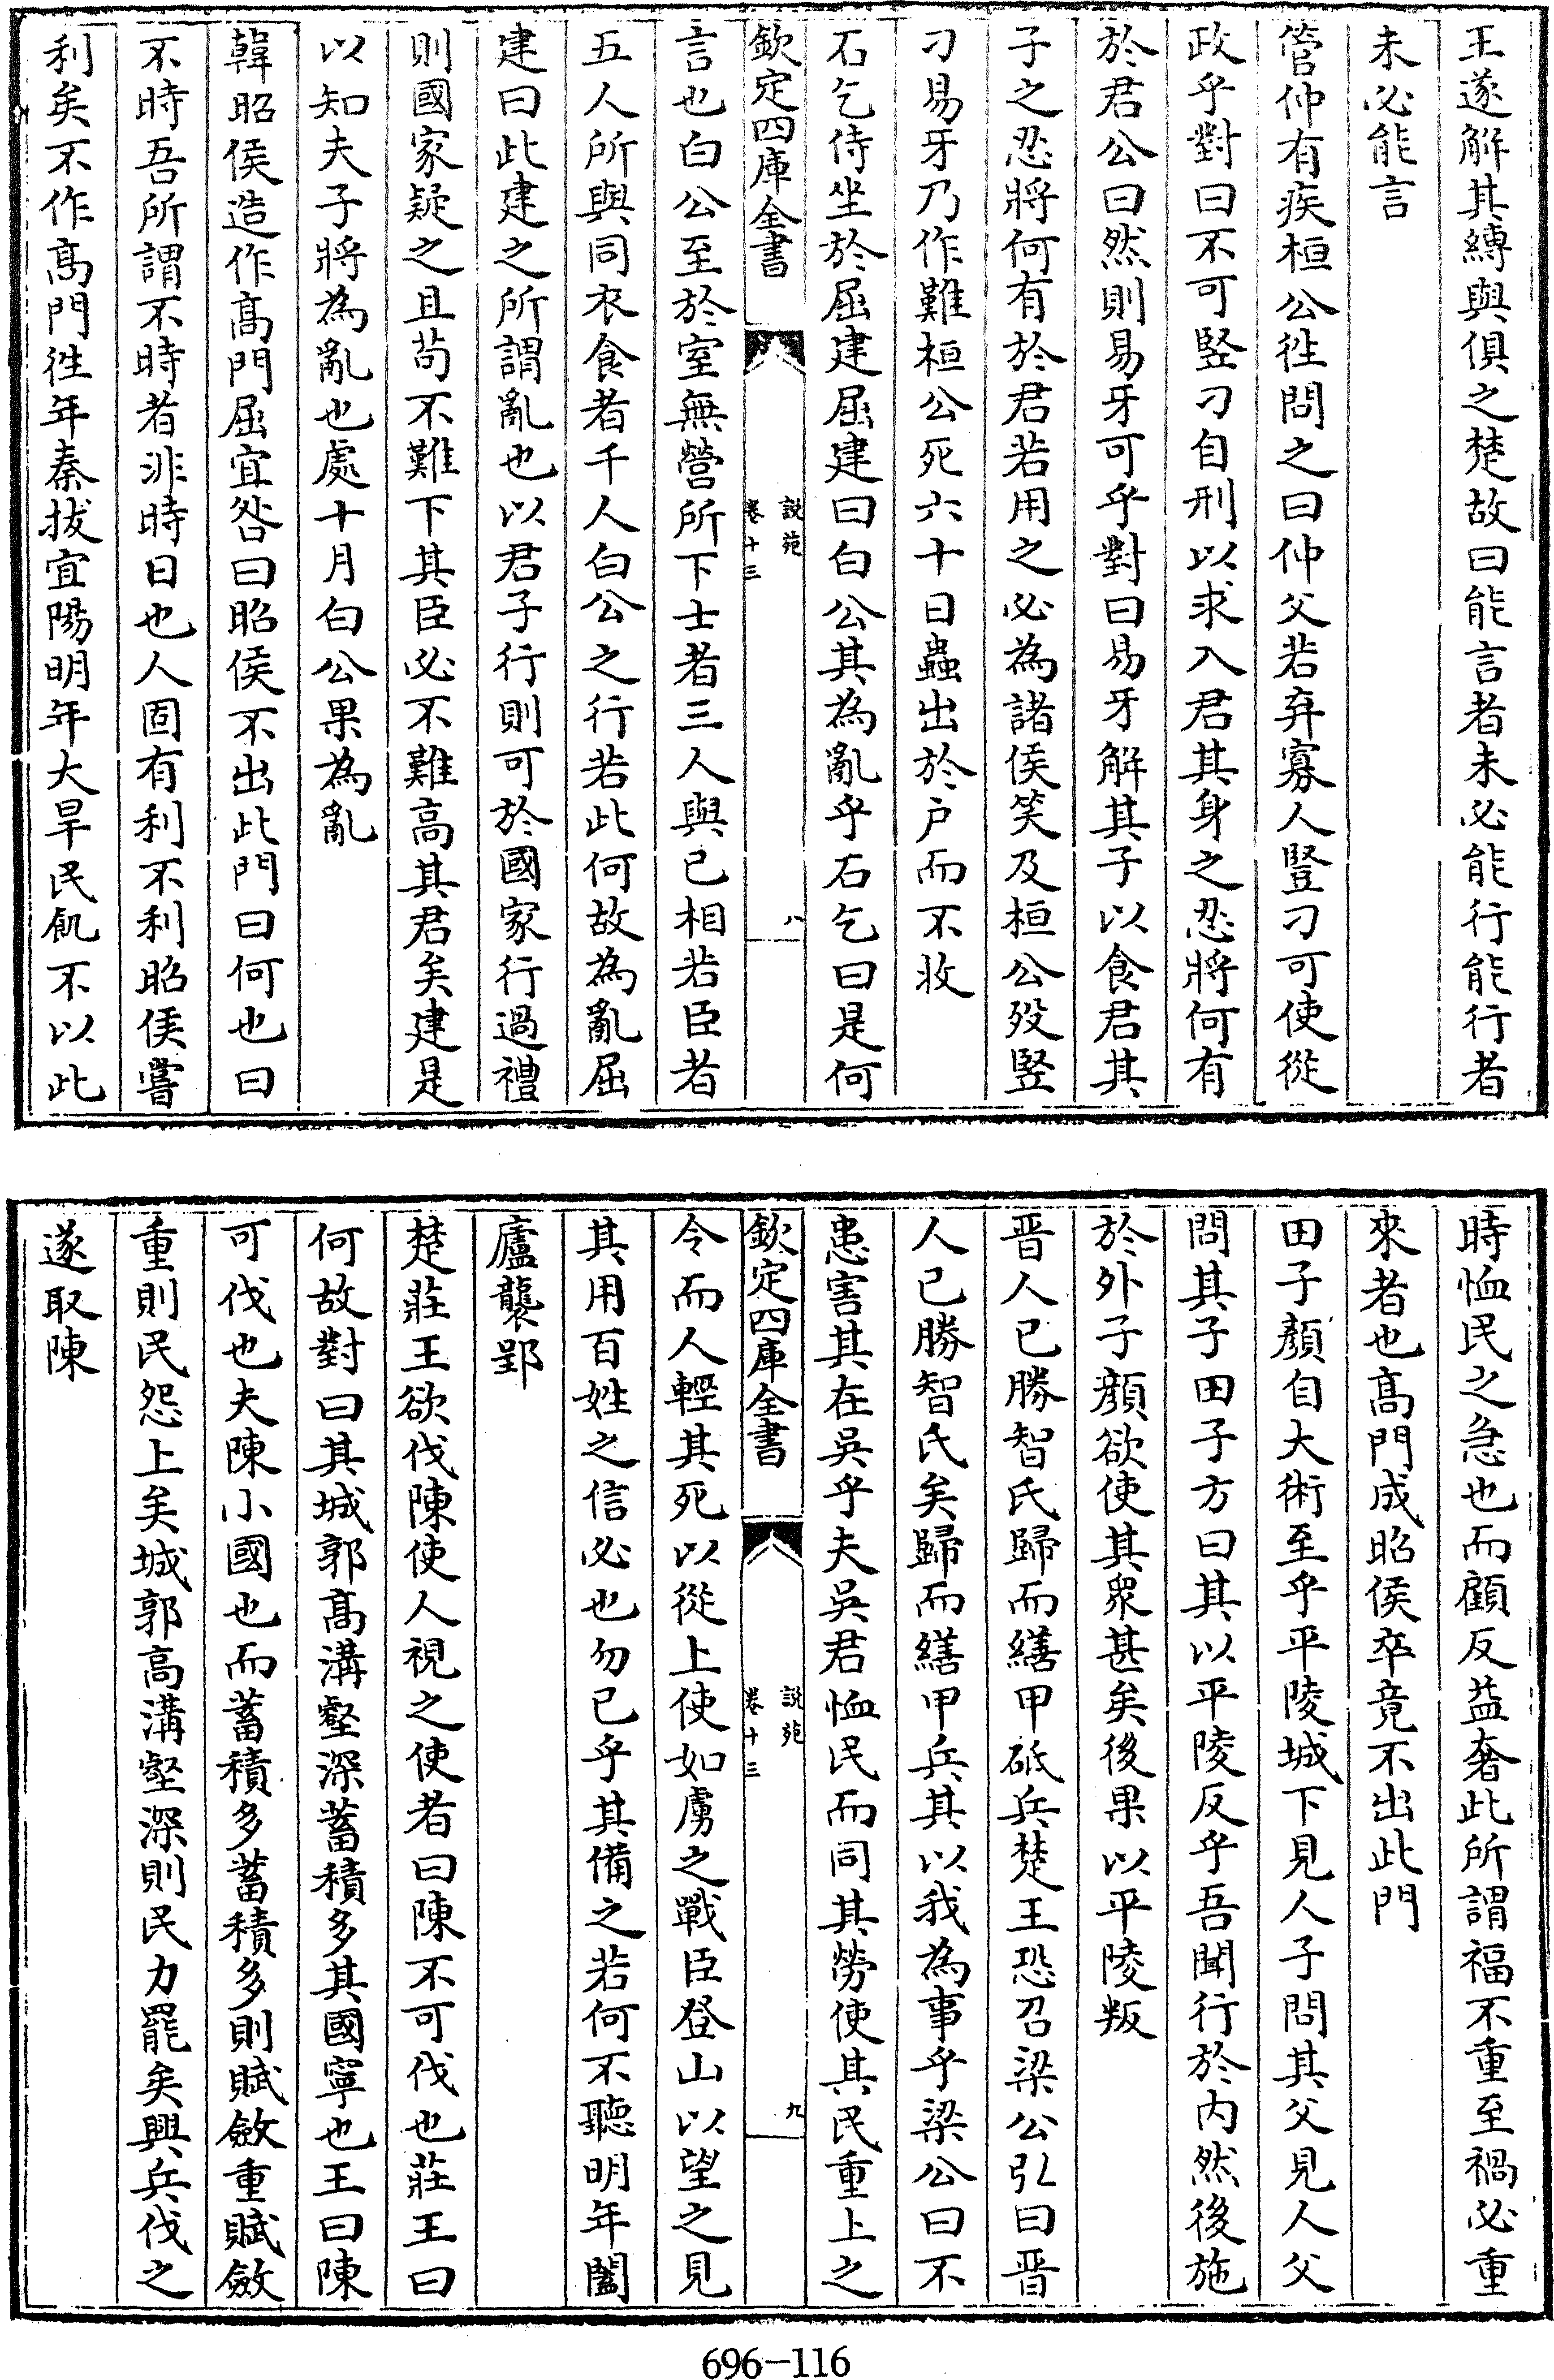 王遂解其縛與俱之楚故曰能言者未必能行能行者
未必能言
管仲有疾桓公徃問之曰仲父若弃寡人豎刁可使從
政乎對曰不可竪刁自刑以求入君其身之忍將何有
於君公曰然則易牙可乎對曰易牙解其子以食君其
子之忍將何有於君若用之必為諸侯笑及桓公歿竪
刁易牙乃作難桓公死六十日蟲出於户而不收
石乞侍坐於屈建屈建曰白公其為亂乎石乞曰是何
欽定四庫全書
說苑
卷十三
八
言也白公至於室無營所下士者三人與已相若臣者
五人所與同衣食者千人白公之行若此何故為亂屈
建曰此建之所謂亂也以君子行則可於國家行過禮
則國家疑之且苟不難下其臣必不難高其君矣建是
以知夫子將為亂也處十月白公果為亂
韓昭侯造作髙門屈宜咎曰昭侯不出此門曰何也曰
不時吾所謂不時者非時日也人固有利不利昭侯嘗
利矣不作髙門徃年秦拔宜陽明年大旱民飢不以此
時恤民之急也而顧反益奢此所謂福不重至禍必重
來者也髙門成昭侯卒竟不出此門
田子顔自大術至乎平陵城下見人子問其父見人父
問其子田子方曰其以平陵反乎吾聞行於内然後施
於外子顔欲使其衆甚矣後果以平陵叛
晋人已勝智氏歸而繕甲砥兵楚王恐召梁公弘曰晋
人已勝智氏矣歸而繕甲兵其以我為事乎梁公曰不
患害其在吳乎夫吳君恤民而同其勞使其民重上之
欽定四庫全書
說苑
卷十三
九
令而人輕其死以從上使如虜之戰臣登山以望之見
其用百姓之信必也勿已乎其備之若何不聽明年闔
廬襲郢
楚莊王欲伐陳使人視之使者曰陳不可伐也莊王曰
何故對曰其城郭髙溝壑深蓄積多其國寧也王曰陳
可伐也夫陳小國也而蓄積多蓄積多則賦斂重賦斂
重則民怨上矣城郭高溝壑深則民力罷矣興兵伐之
遂取陳
696-116